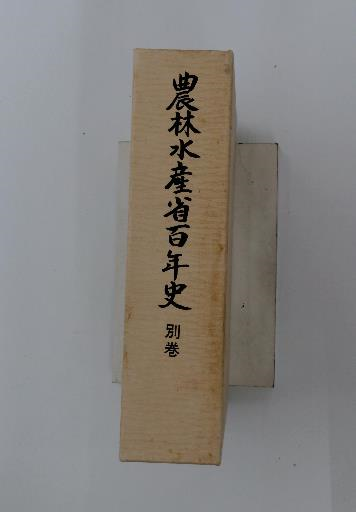 農林水産省百年史
別巻